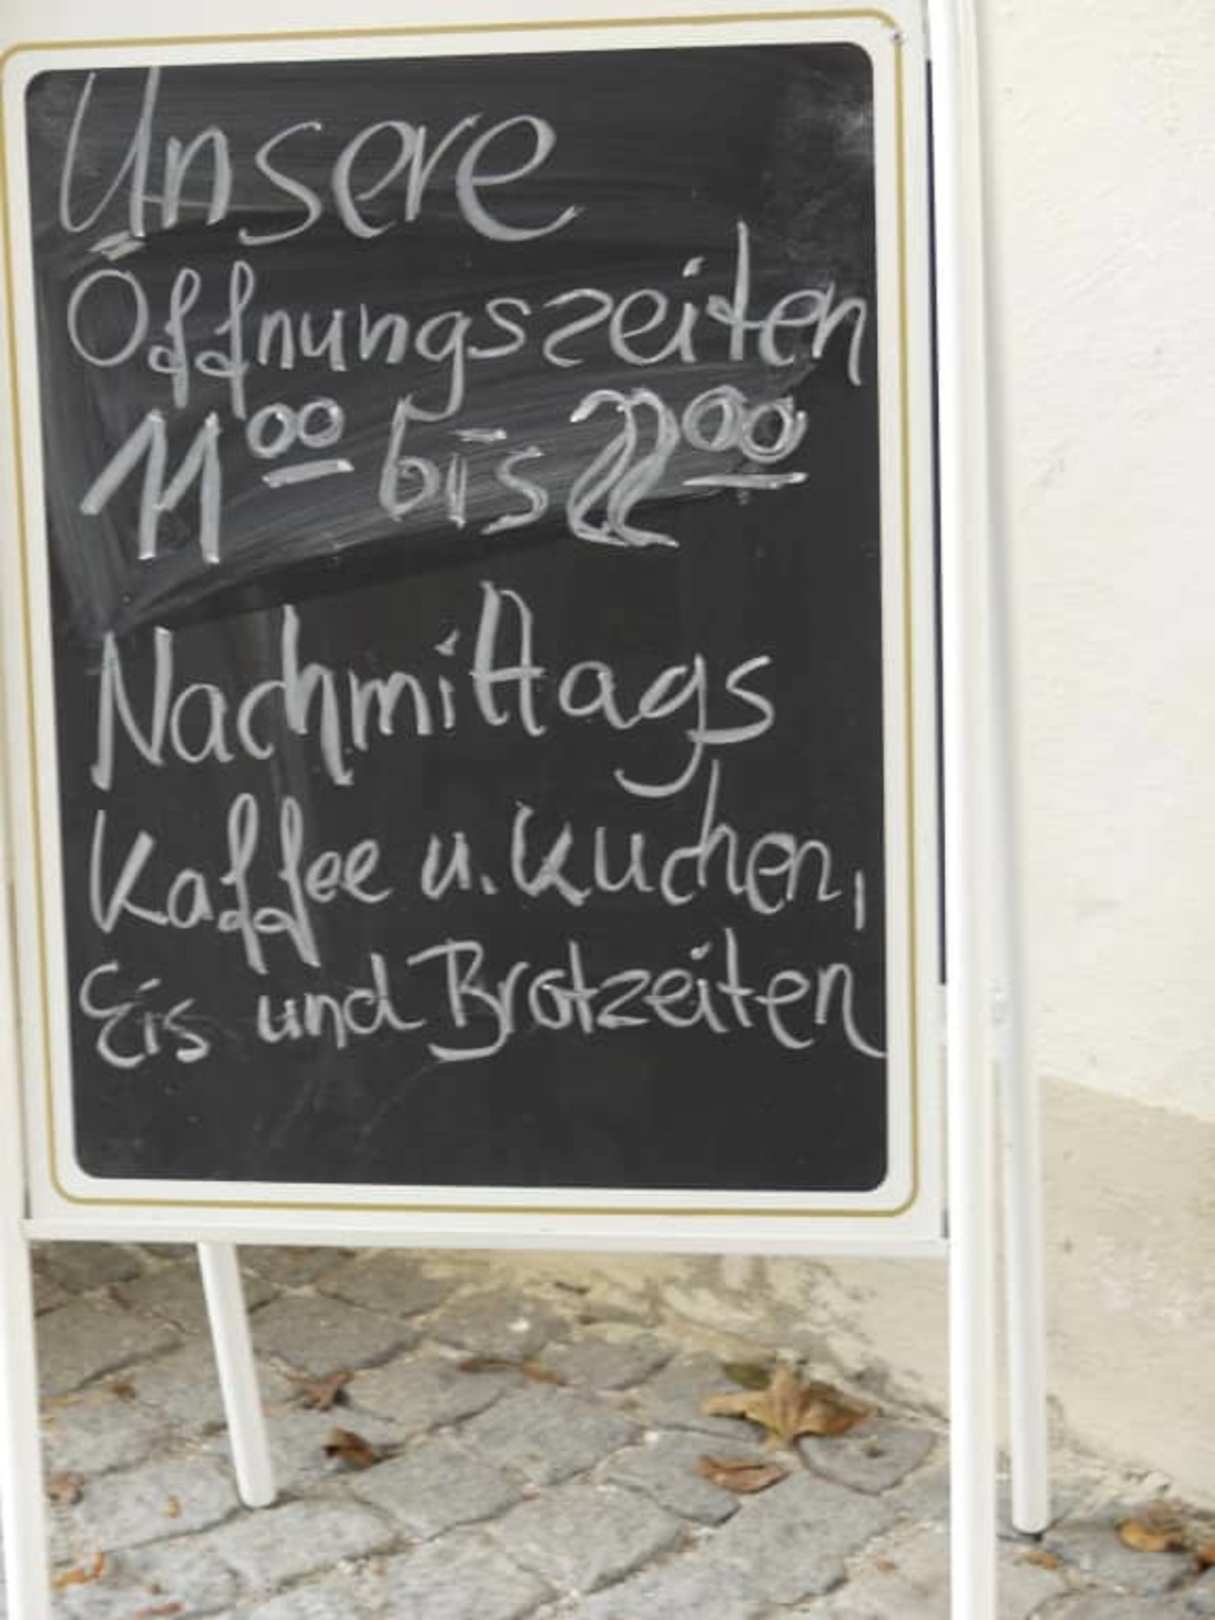 Unsere
Öffnungszeiten
11⁰⁰ bis 22⁰⁰
Nachmittags
Kaffee u. Kuchen,
Eis und Brotzeiten